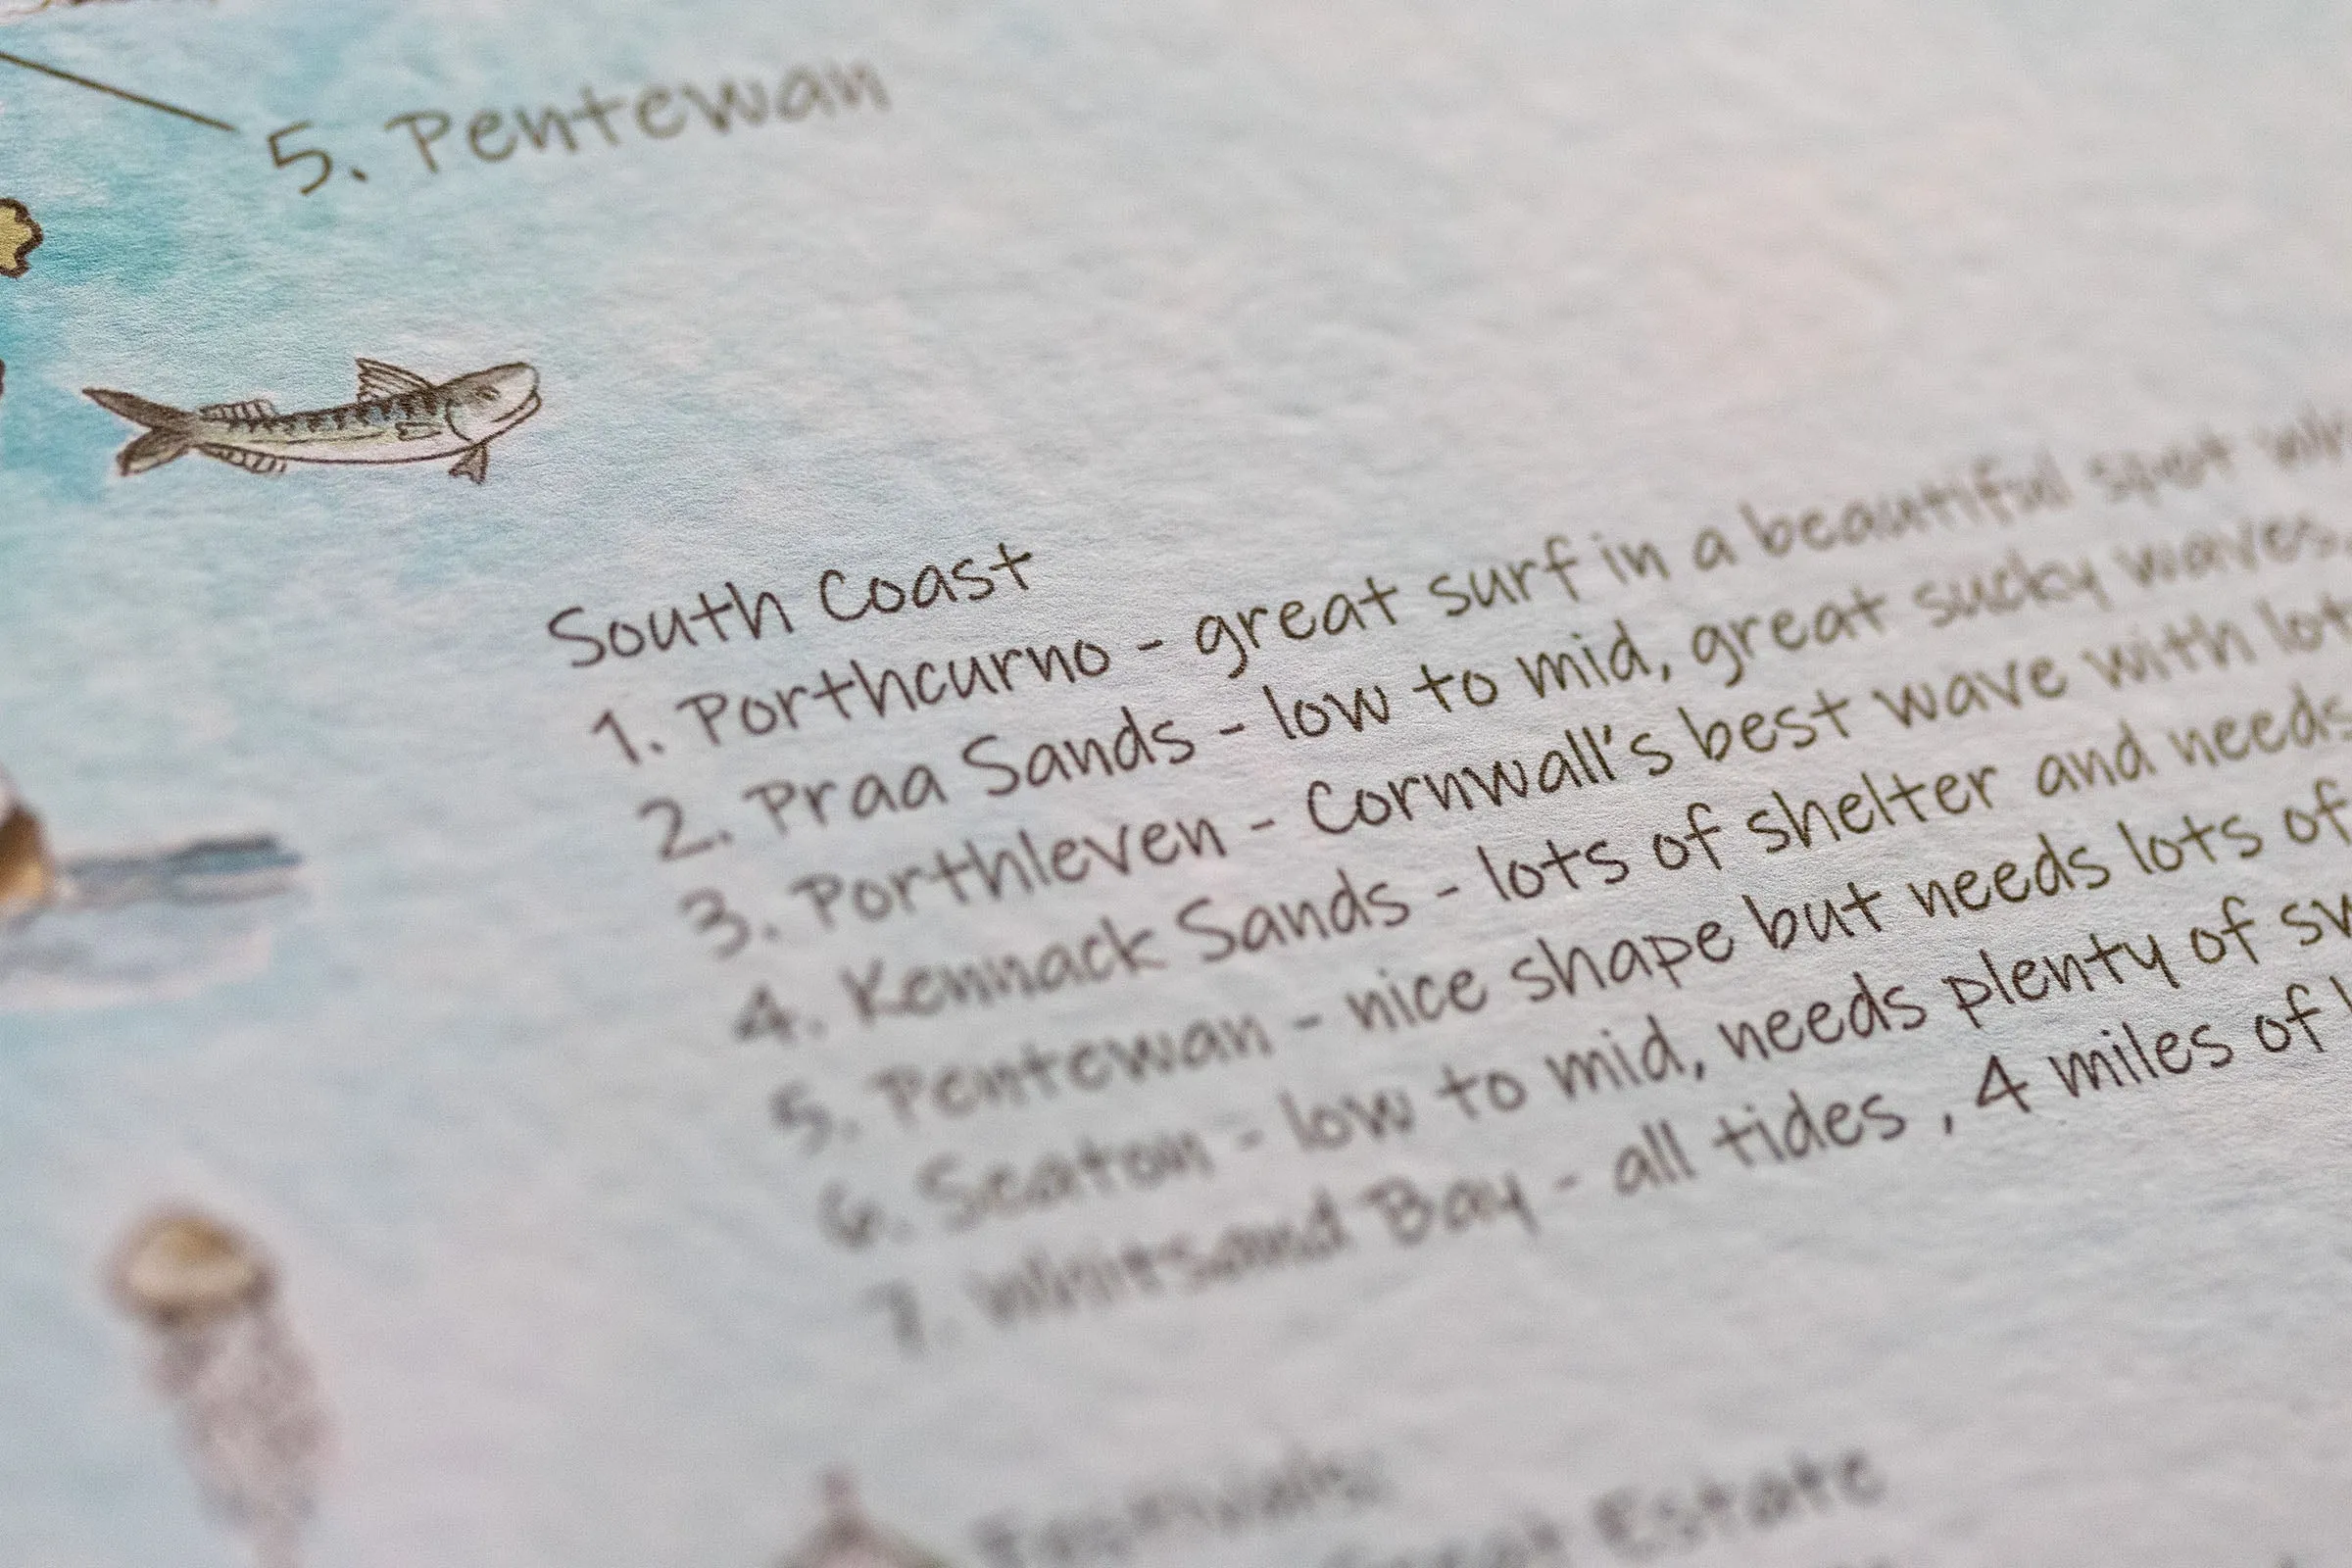 5. Pentewan
South Coast
1. Porthcurno - great surf in a beautiful spot
2. Praa Sands - low to mid, great sucky waves
3. Porthleven - Cornwall's best wave with
4. Kennack Sands - lots of shelter and needs
5. Pentewan - nice shape but needs lots of
6. Seaton - low to mid, needs plenty of
7. Whitsand Bay - all tides , 4 miles of
Festivals:
Great Estate